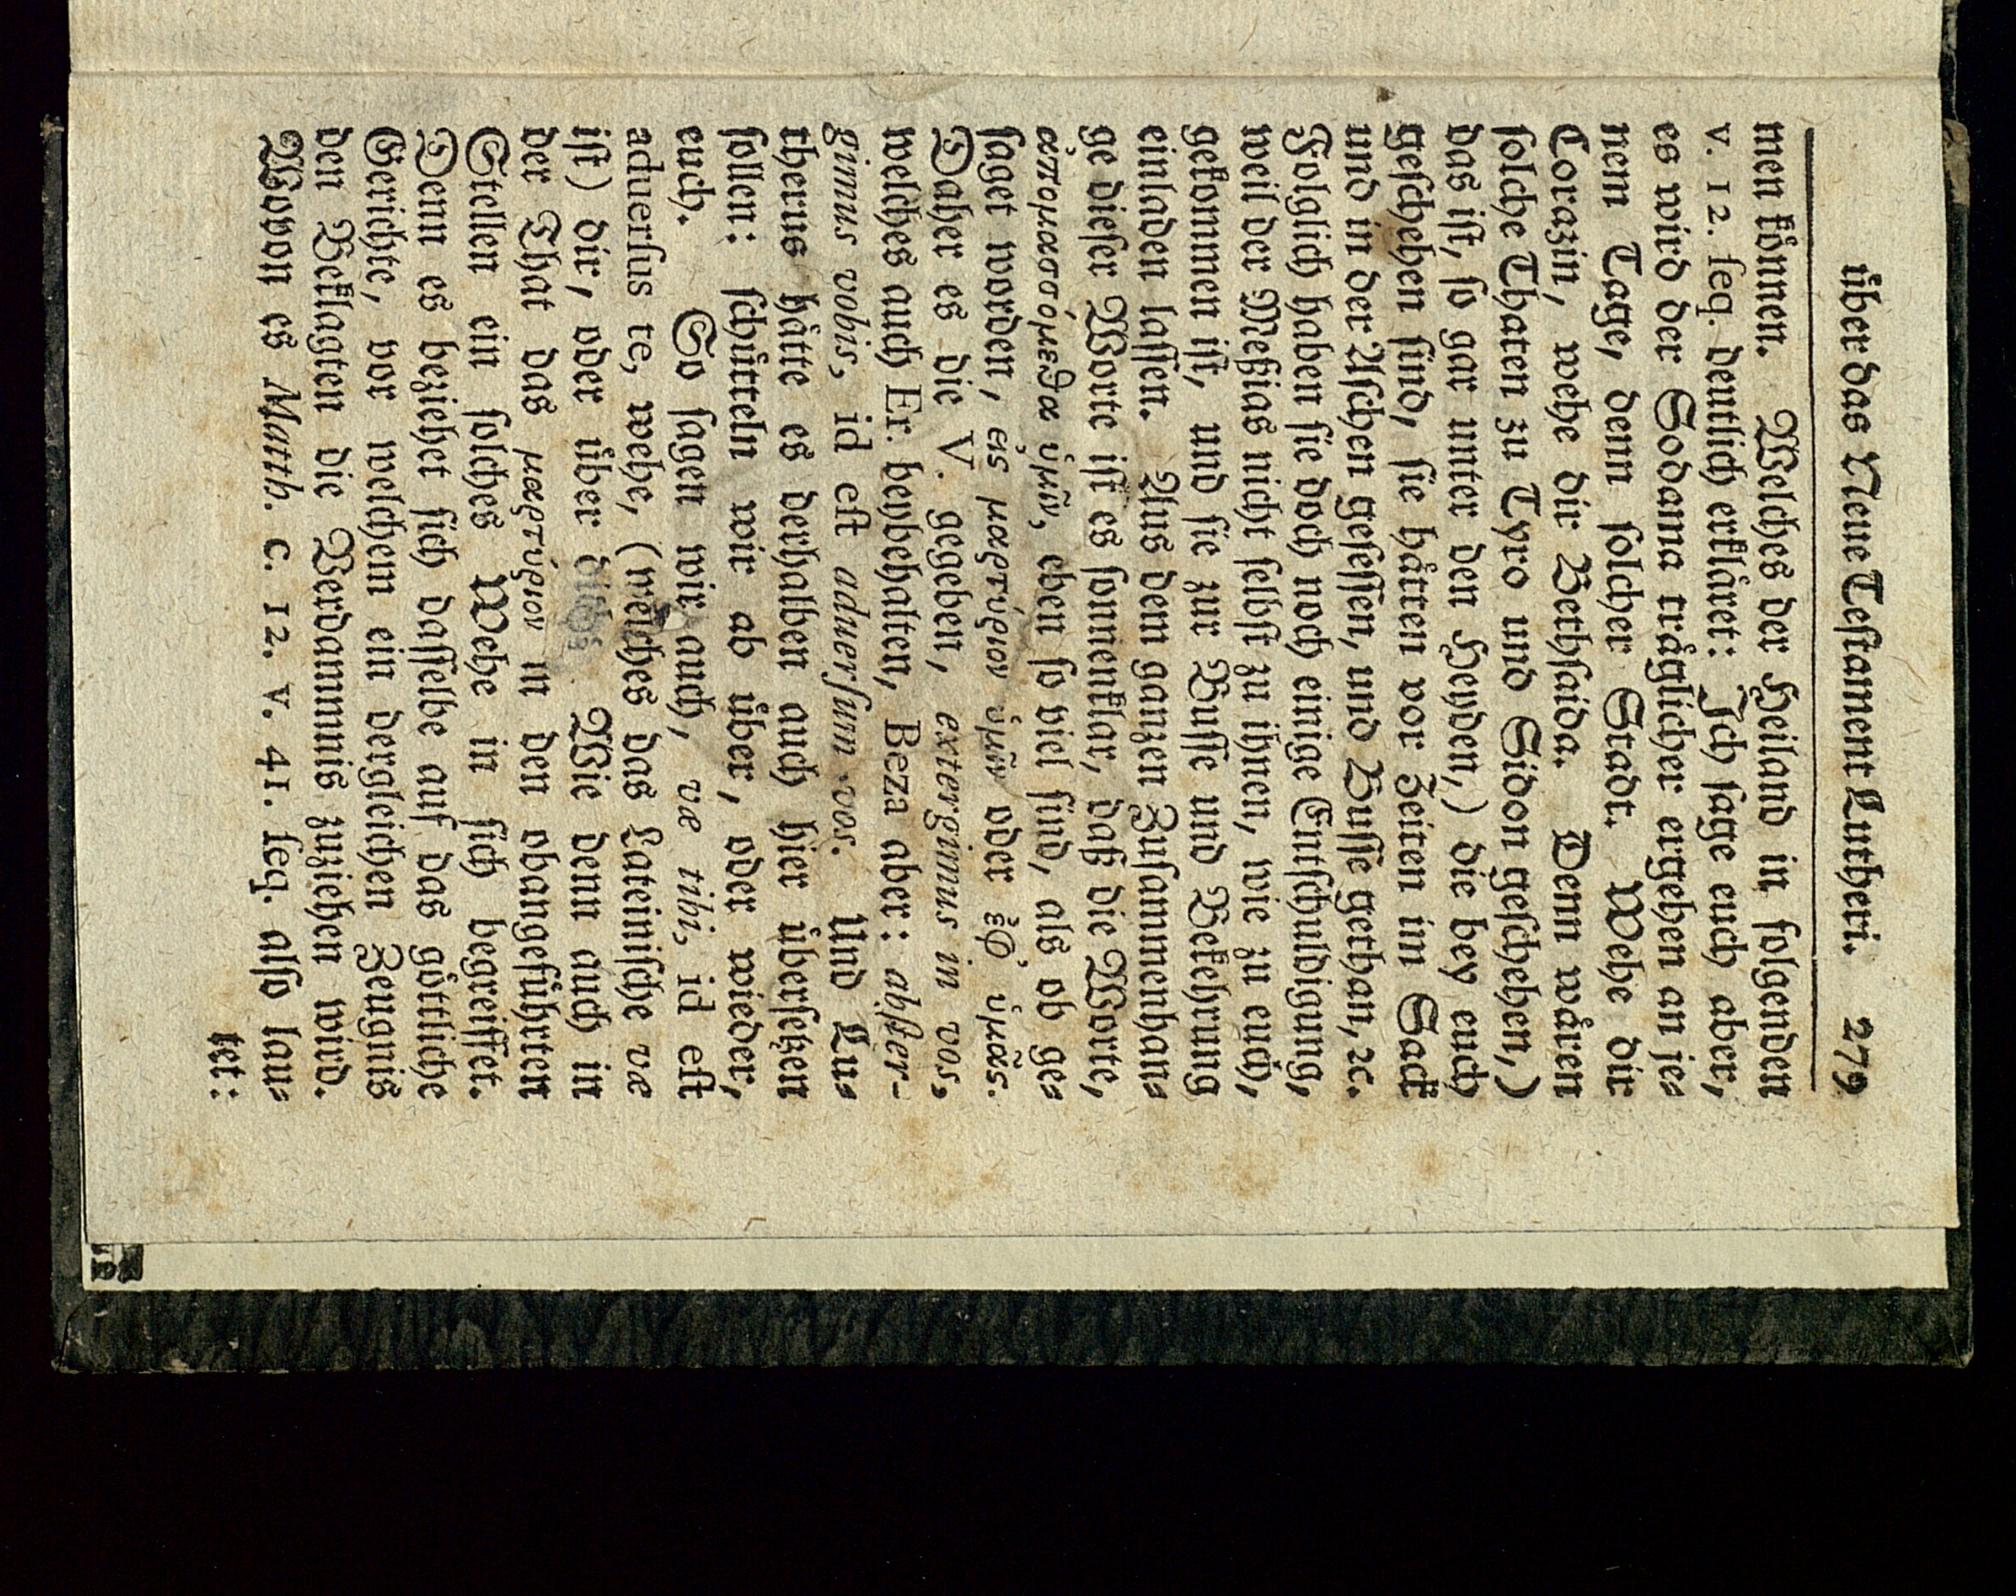 über das Neue Testament Lutheri. 279
men können. Welches der Heiland in folgenden
v. 12. seq. deutlich erkläret: Ich sage euch aber,
es wird der Sodama träglicher ergehen an je⸗
nem Tage, denn solcher Stadt. Wehe dir
Corazin, wehe dir Bethsaida. Denn wären
solche Thaten zu Tyro und Sidon geschehen,)
das ist, so gar unter den Heyden,) die bey euch
geschehen sind, sie hätten vor Zeiten im Sack
und in der Aschen gesessen, und Busse gethan, ꝛc.
Folglich haben sie doch noch einige Entschuldigung,
weil der Meßias nicht selbst zu ihnen, wie zu euch,
gekommen ist, und sie zur Busse und Bekehrung
einladen lassen. Aus dem ganzen Zusammenhan⸗
ge dieser Worte ist es sonnenklar, daß die Worte,
ἀπομασσόμεθα ὑμῖν, eben so viel sind, als ob ge⸗
saget worden, εἰς μαρτύριον ὑμῖν oder ἐφ᾽ ὑμᾶς.
Daher es die V. gegeben, extergimus in vos,
welches auch Er. beybehalten, Beza aber: abster-
gimus vobis, id est aduersum vos. Und Lu⸗
therus hätte es derhalben auch hier übersetzen
sollen: schütteln wir ab über, oder wieder,
euch. So sagen wir auch, væ tibi, id est
aduersus te, wehe, (welches das Lateinische væ
ist) dir, oder über dich. Wie denn auch in
der That das μαρτύριον in den obangeführten
Stellen ein solches Wehe in sich begreiffet.
Denn es beziehet sich dasselbe auf das göttliche
Gerichte, vor welchem ein dergleichen Zeugnis
den Beklagten die Verdammnis zuziehen wird.
Wovon es Matth. c. 12. v. 41. seq. also lau⸗
tet: